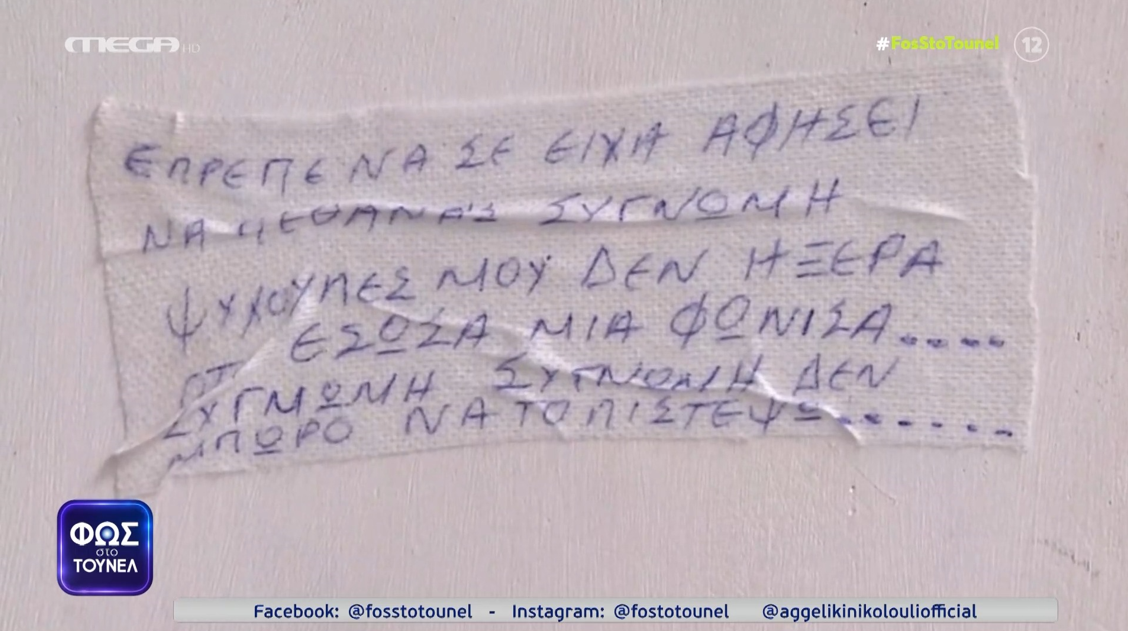 MEGA HD
#FosStoTounel 12
ΕΠΡΕΠΕ ΝΑ ΣΕ ΕΙΧΑ ΑΦΗΣΕΙ
ΝΑ ΠΕΘΑΝΑΣ ΣΥΓΝΩΜΗ
ΨΥΧΟΥΠΕΣ ΜΟΥ ΔΕΝ ΗΞΕΡΑ
ΟΤΙ ΕΣΩΣΑ ΜΙΑ ΦΩΝΙΣΑ.....
ΣΥΓΜΩΝΗ ΣΥΓΝΩΜΗ ΔΕΝ
ΜΠΩΡΟ ΝΑ ΤΟ ΠΙΣΤΕΨΩ.......
ΦΩΣ
στο
ΤΟΥΝΕΛ
Facebook: @fosstotounel - Instagram: @fostotounel @aggelikinikolouliofficial